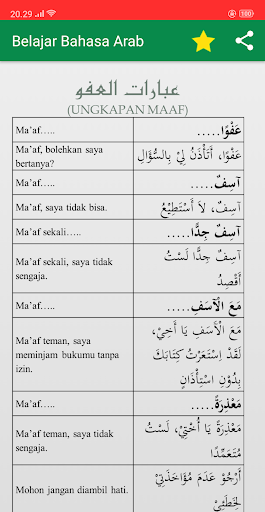 20.29
100
Belajar Bahasa Arab
عبارات العفو
(UNGKAPAN MAAF)
Ma'af…..
عَفْوًا.....
Ma'af, bolehkan saya
bertanya?
عَفْوًا، أَتَأْذَنُ لِيْ بِالسُّؤَالِ
Ma'af…..
آسِفٌ.....
Ma'af, saya tidak bisa.
آسِفٌ، لاَ أَسْتَطِيْعُ
Ma'af sekali…..
آسِفٌ جِدًّا.....
Ma'af sekali, saya tidak
sengaja.
آسِفٌ جِدًّا لَسْتُ
أَقْصِدُ
Ma'af…..
مَعَ الْأَسَفِ.....
Ma'af teman, saya
meminjam bukumu tanpa
izin.
مَعَ الْأَسَفِ يَا أَخِيْ،
لَقَدْ اِسْتَعَرْتُ كِتَابَكَ
بِدُوْنِ اسْتِأْذَانٍ
Ma'af…..
مَعْذِرَةً.....
Ma'af teman, saya tidak
sengaja.
مَعْذِرَةً يَا أُخْتِيْ، لَسْتُ
مُتَعَمِّدًا
Mohon jangan diambil hati.
أَرْجُوْ عَدَمَ مُؤَاخَذَتِيْ
لِخَطَئِيْ